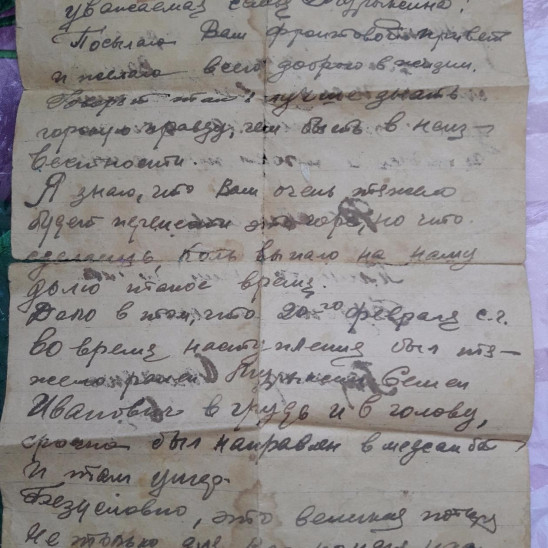 уважаемая семья
Посылаю Вам фронтовой привет
и желаю всего доброго в жизни.
Говорят там лучше знать
горькую правду, чем быть в неиз-
вестности.
Я знаю, что Вам очень тяжело
будет перенести это горе, но что
сделаешь коль выпало на нашу
долю такое время.
Дело в том, что 20го февраля с.г.
во время наступления был тя-
жело ранен Семен
Иванович в грудь и в голову,
срочно был направлен в медсанбат
и там умер.
Безусловно, это великая потеря
Не только для